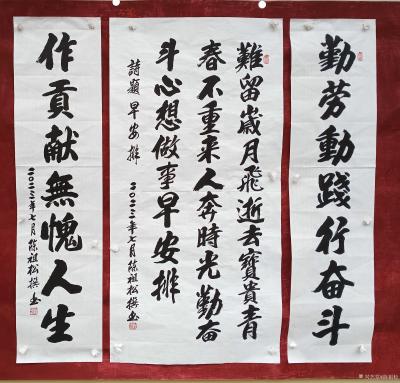 勤劳動踐行奋斗
難留歲月飛逝去寶貴青
春不重来人奔時光勤奋
斗心想做事早安排
詩題 早安排 二〇二三年七月陈祖松撰书
作貢献無愧人生
二〇二三年七月陈祖松撰书